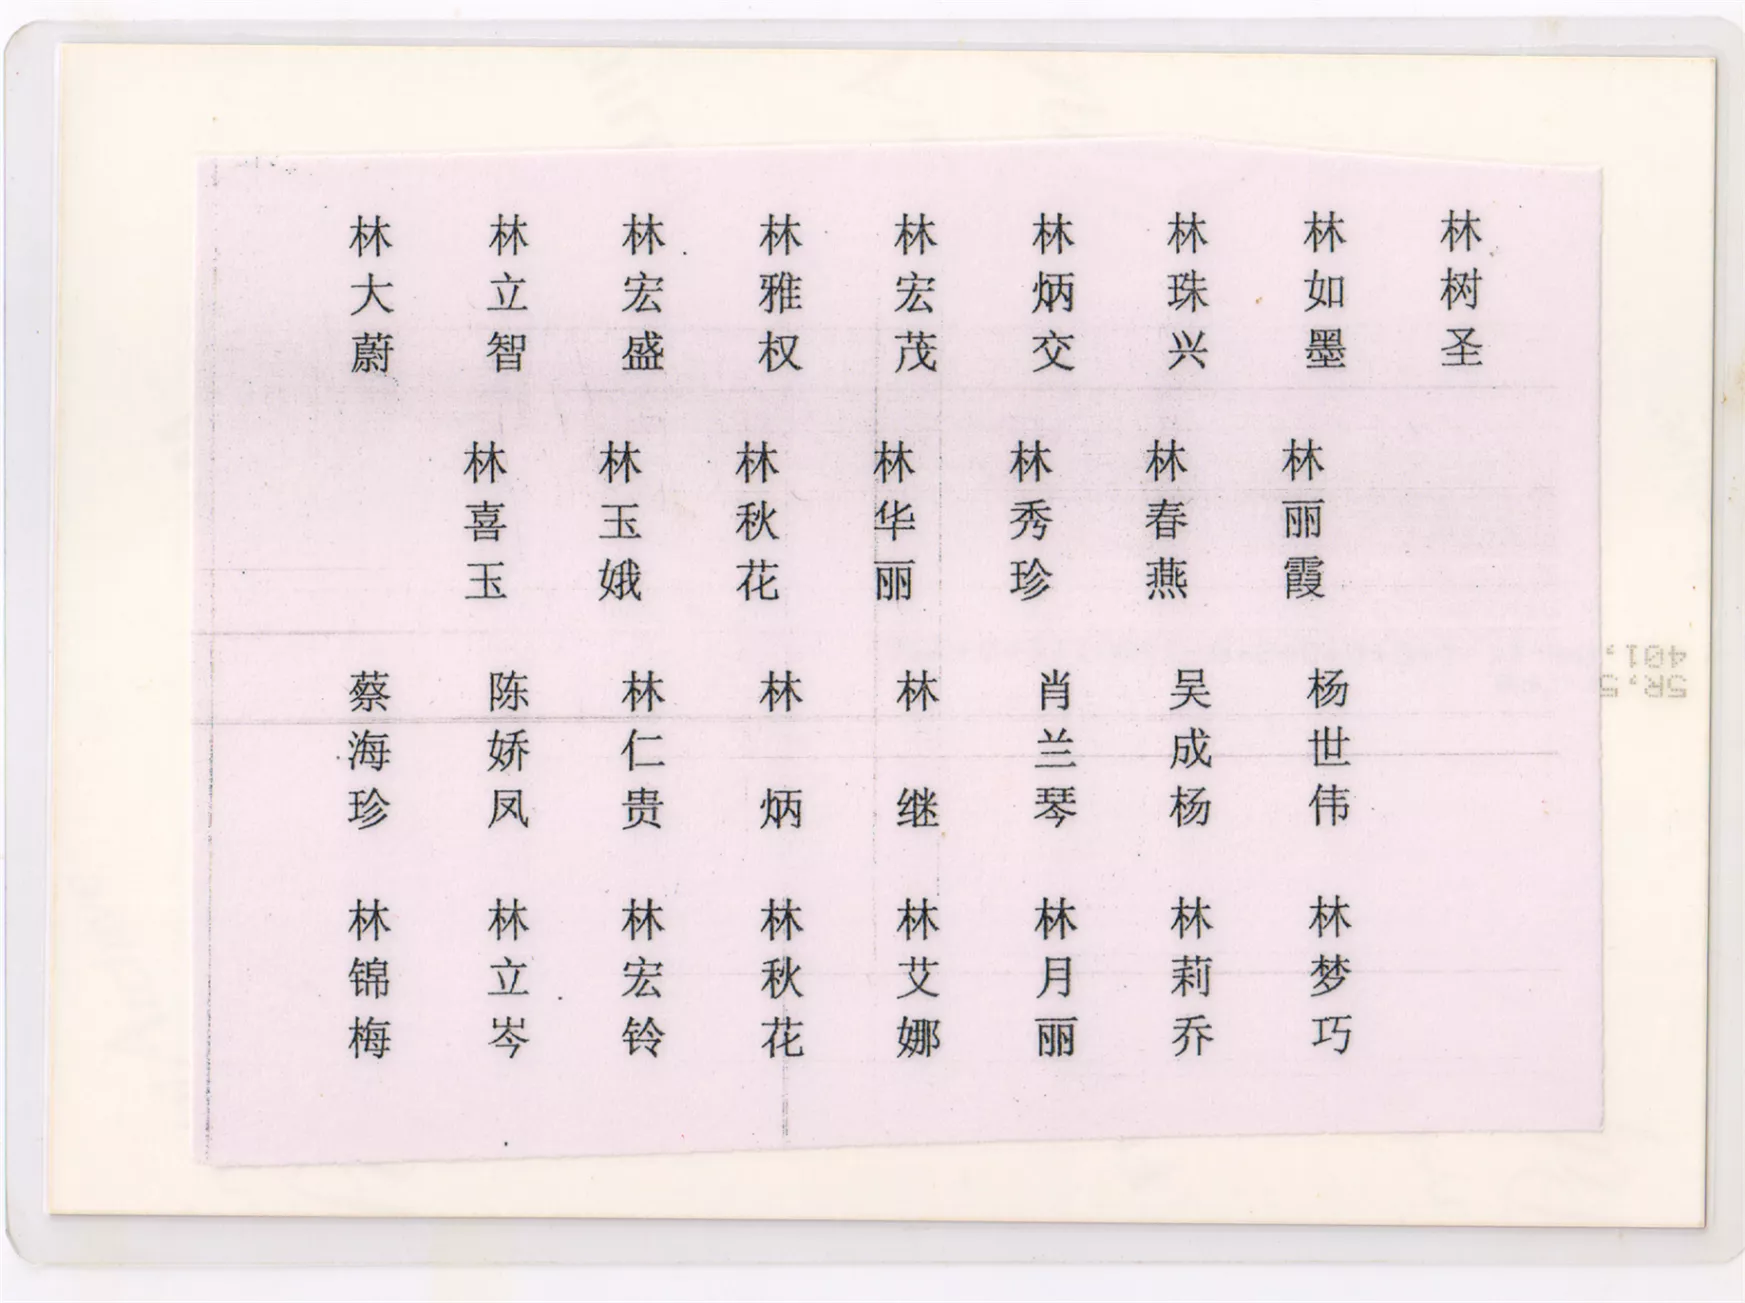 林大蔚
林立智
林宏盛
林雅权
林宏茂
林炳交
林珠兴
林如墨
林树圣
林喜玉
林玉娥
林秋花
林华丽
林秀珍
林春燕
林丽霞
蔡海珍
陈娇凤
林仁贵
林炳
林继
肖兰琴
吴成杨
杨世伟
林锦梅
林立岑
林宏铃
林秋花
林艾娜
林月丽
林莉乔
林梦巧